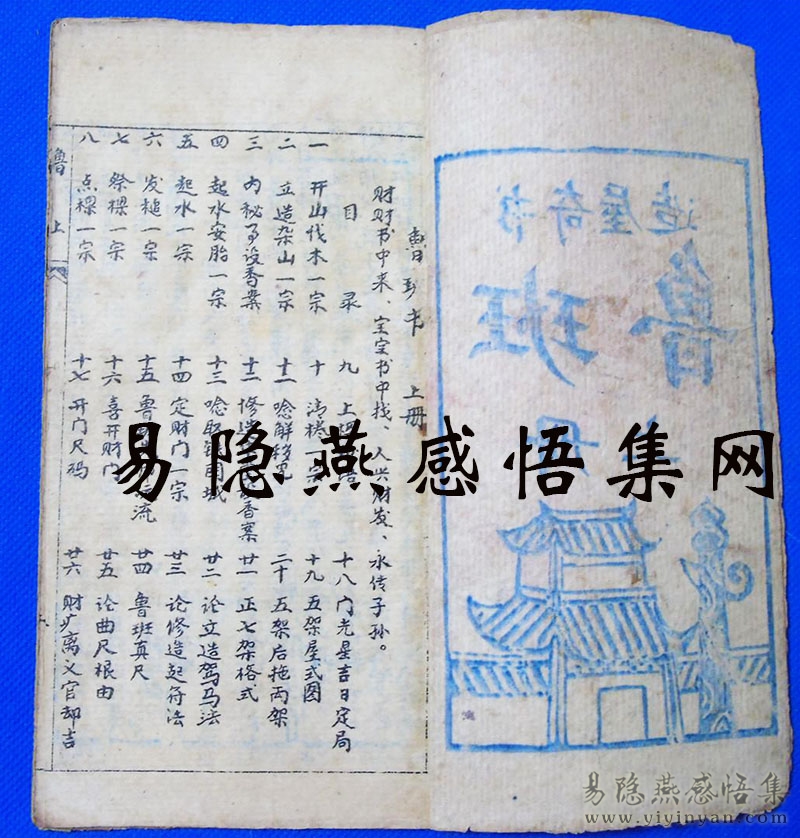 造屋奇书
鲁班
鲁班书 上册
财财书中来、宝宝书中找、人兴财发、永传子孙。
目录
一 开山伐木一宗
二 立造杂山一宗
三 内秘了设香案
四 起水安胎一宗
五 起水一宗
六 发槌一宗
七 祭樑一宗
八 点樑一宗
九 上
十 一宗
十一 唸解
十二 修造 香案
十三 唸 城
十四 定财门一宗
十五 鲁 流
十六 喜开财门
十七 开门尺码
十八 门光星吉日定局
十九 五架屋式图
二十 五架后拖两架
廿一 正七架格式
廿二 论立造驾马法
廿三 论修造起符法
廿四 鲁班真尺
廿五 论曲尺根由
廿六 财旷离义官却吉
鲁 上
易隐燕感悟集网
易隐燕感悟集
www.yiyinyan.com